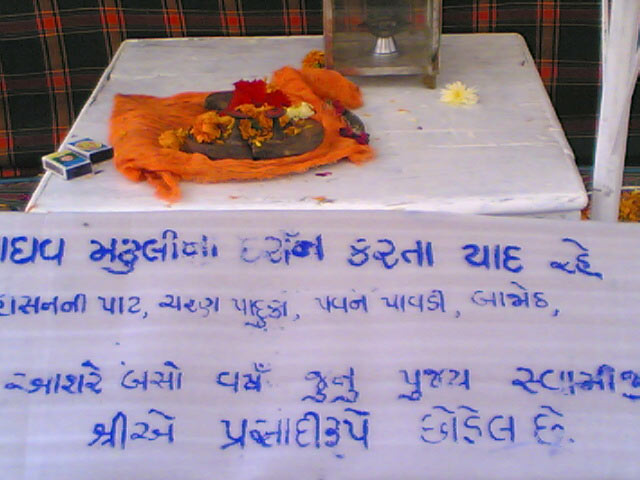 દર્શન કરતા યાદ રહે
પાટ, ચરણ પાદુકા, પવન પાવડી, બાજોઠ,
આશરે બસો વર્ષ જુનુ પુજય સ્વામીજી
શ્રીએ પ્રસાદીરૂપે છોડેલ છે.